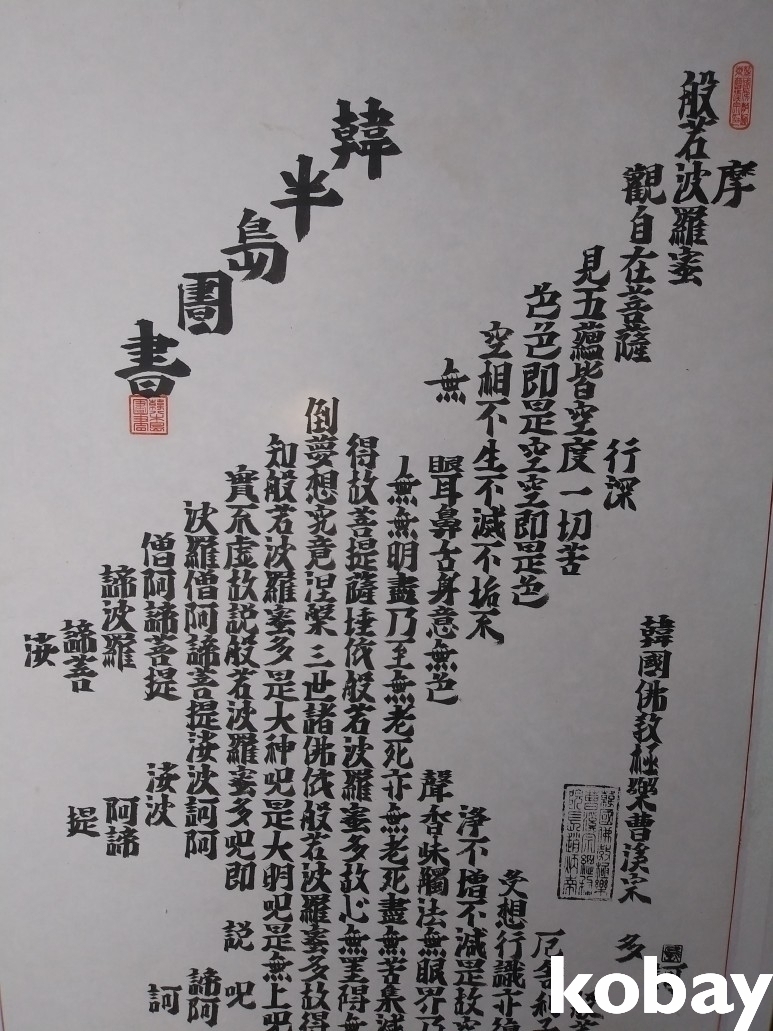 摩
般若波羅蜜
觀自在菩薩
行深
見五蘊皆空度一切苦
色色即是空空即是色
空相不生不滅不垢不
無
眼耳鼻舌身意無色
無無明盡乃至無老死亦無老死盡無苦集滅
得故菩提薩埵依般若波羅蜜多故心無罣碍無
倒夢想究竟涅槃三世諸佛依般若波羅蜜多故得
知般若波羅蜜多是大神呪是大明呪是無上呪
實不虛故說般若波羅蜜多呪即
波羅僧阿諦菩提娑波訶阿
僧阿諦菩提
諦波羅
諦菩
娑
韓半島圖書
韓國佛教極樂曹溪宗
訶
多
厄舍利子
受想行識亦復
淨不增不減是故空
聲香味觸法無眼界乃
說呪
諦阿
娑波
訶
阿諦
提
kobay